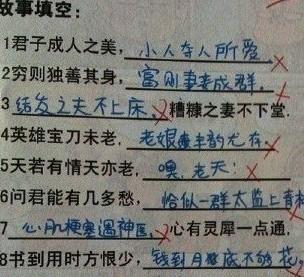 故事填空:
1君子成人之美，小人夺人所爱
2穷则独善其身，富则妻妾成群.
3结发之夫不上床，糟糠之妻不下堂.
4英雄宝刀未老，老娘丰韵尤存
5天若有情天亦老，噢,老天!
6问君能有几多愁，恰似一群太监上青
7心肌梗塞遇神医，心有灵犀一点通，
8书到用时方恨少，钱到月底不够花